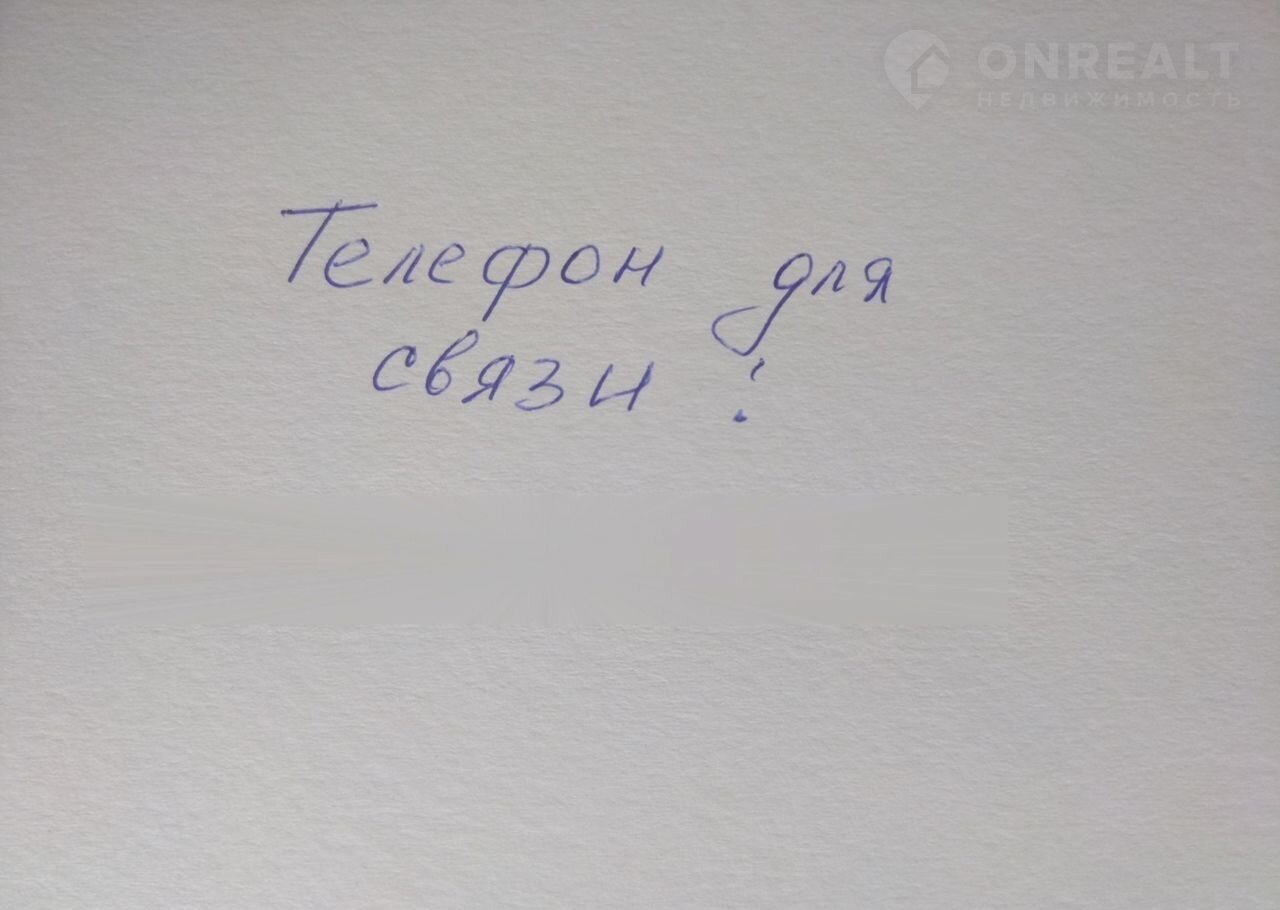 ONREALT
НЕДВИЖИМОСТЬ
Телефон для
связи: